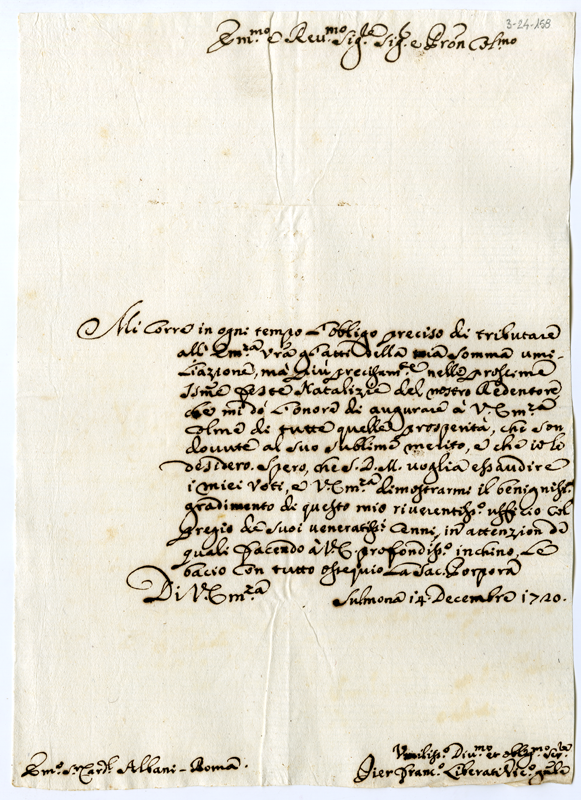 3-24-158
Em.mo e Rev.mo Sig.re Sig.r e Pròn Col.mo
Mi Corre in ogni tempo l'obligo preciso di tributare
all'Em.za Vr̃a gl'atti della mia somma umi-
liazione, mà più precisam.te nelle prossime
S.me feste Natalizie del nostro Redentore
che mi dò l'onore di augurare à V. Em.za
Colme di tutte quelle prosperità, che son
dovute al suo sublime merito, e che io le
desidero. Spero, che S. D. M. voglia essaudire
i miei voti, e V. Em.za dimostrarmi il benigniss.o
gradimento di questo mio riverentiss.o ufficio col
pregio de suoi veneratiss.i Cenni, in attenzion de
quali facendo à V. E. profondiss.o inchino, Le
bacio con tutto ossequio La Sac. Porpora
Di V. Em.za
Sulmona 14 Decembre 1720.
Em.o S. Card.l Albani - Roma.
Umiliss.o Div.mo et oblig.mo Ser.re
Pier Franc.o Liberati Vic.o gñle